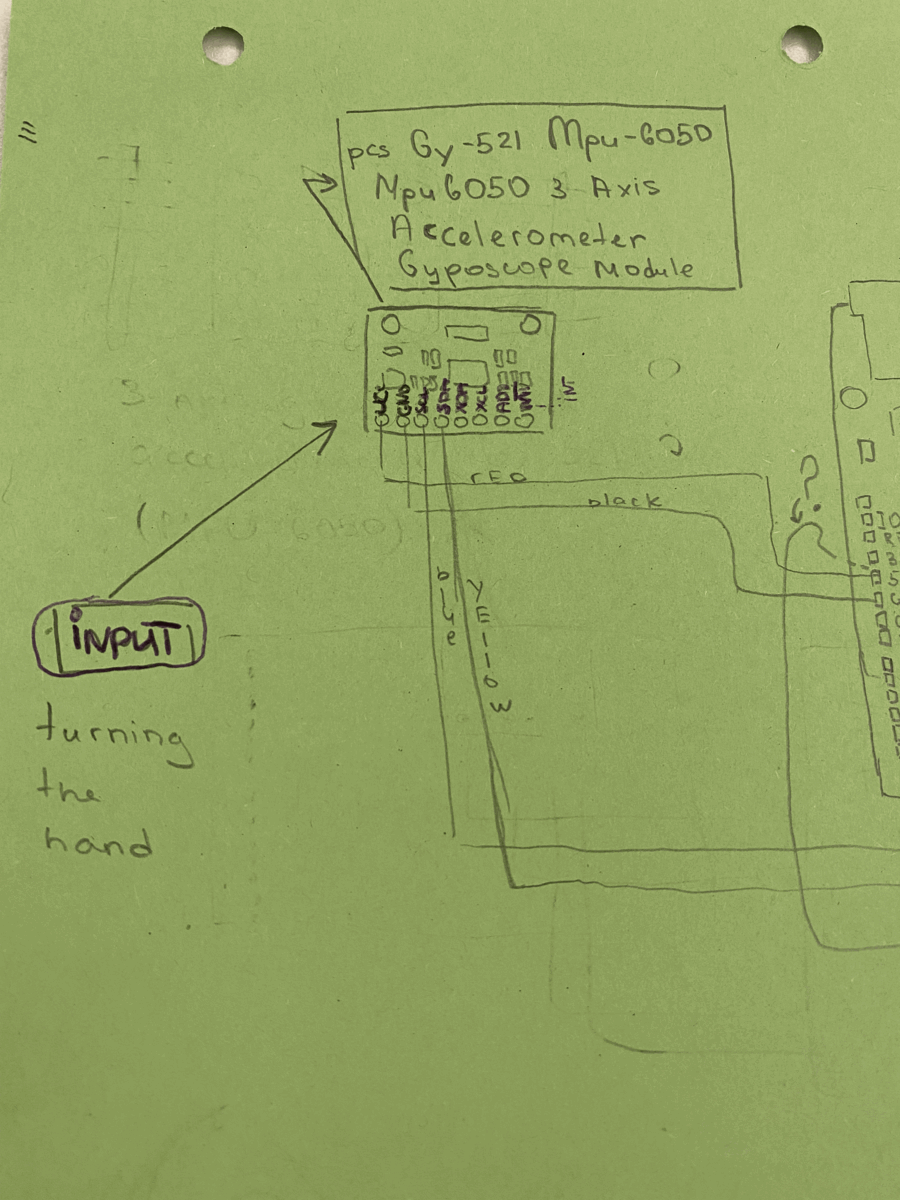 pcs Gy-521 Mpu-6050
Mpu6050 3 Axis
Accelerometer
Gyposcope Module
VCC
GND
SCL
SDA
XDA
XCL
AD0
INT
INT
RED
black
blue
YEllow
?
iNPUT
turning
the
hand
3
5